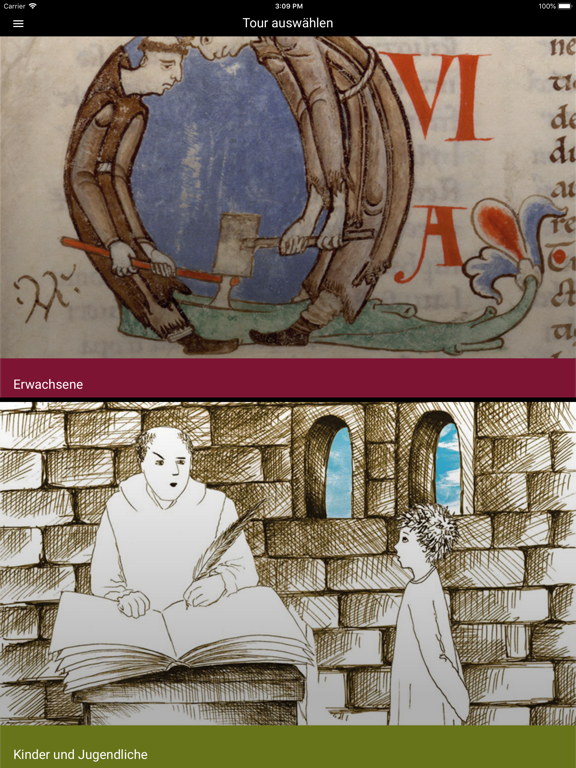 Carrier 3:09 PM 100%
Tour auswählen
VI
A
Erwachsene
Kinder und Jugendliche